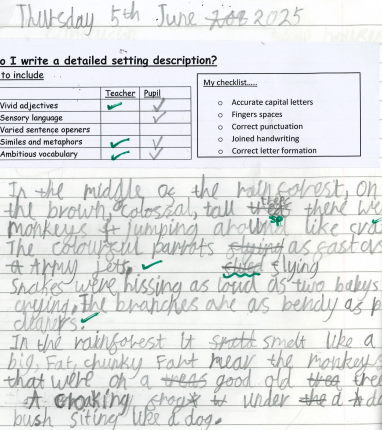 Thursday 5th June 2025
o I write a detailed setting description?
to include
Teacher Pupil
Vivid adjectives
Sensory language
Varied sentence openers
Similes and metaphors
Ambitious vocabulary
My checklist.....
o Accurate capital letters
o Fingers spaces
o Correct punctuation
o Joined handwriting
o Correct letter formation
In the middle of the rainforest, on
the brown, colossal, tall there we
sp
monkeys jumping around like
The colourful parrots as fast as
a Army jets. flying
Snakes were hissing as loud as two babys
crying. The branches are as bendy as p
cleaners.
In the rainforest It smelt like a
big, Fat, chunky Fart near the monkeys
that were on a good old tree
A croaking under
bush siting like a dog.